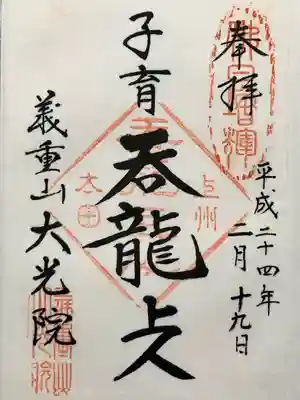 奉拝
平成二十四年
二月十九日
子育
呑龍上人
義重山大光院
上州
太田